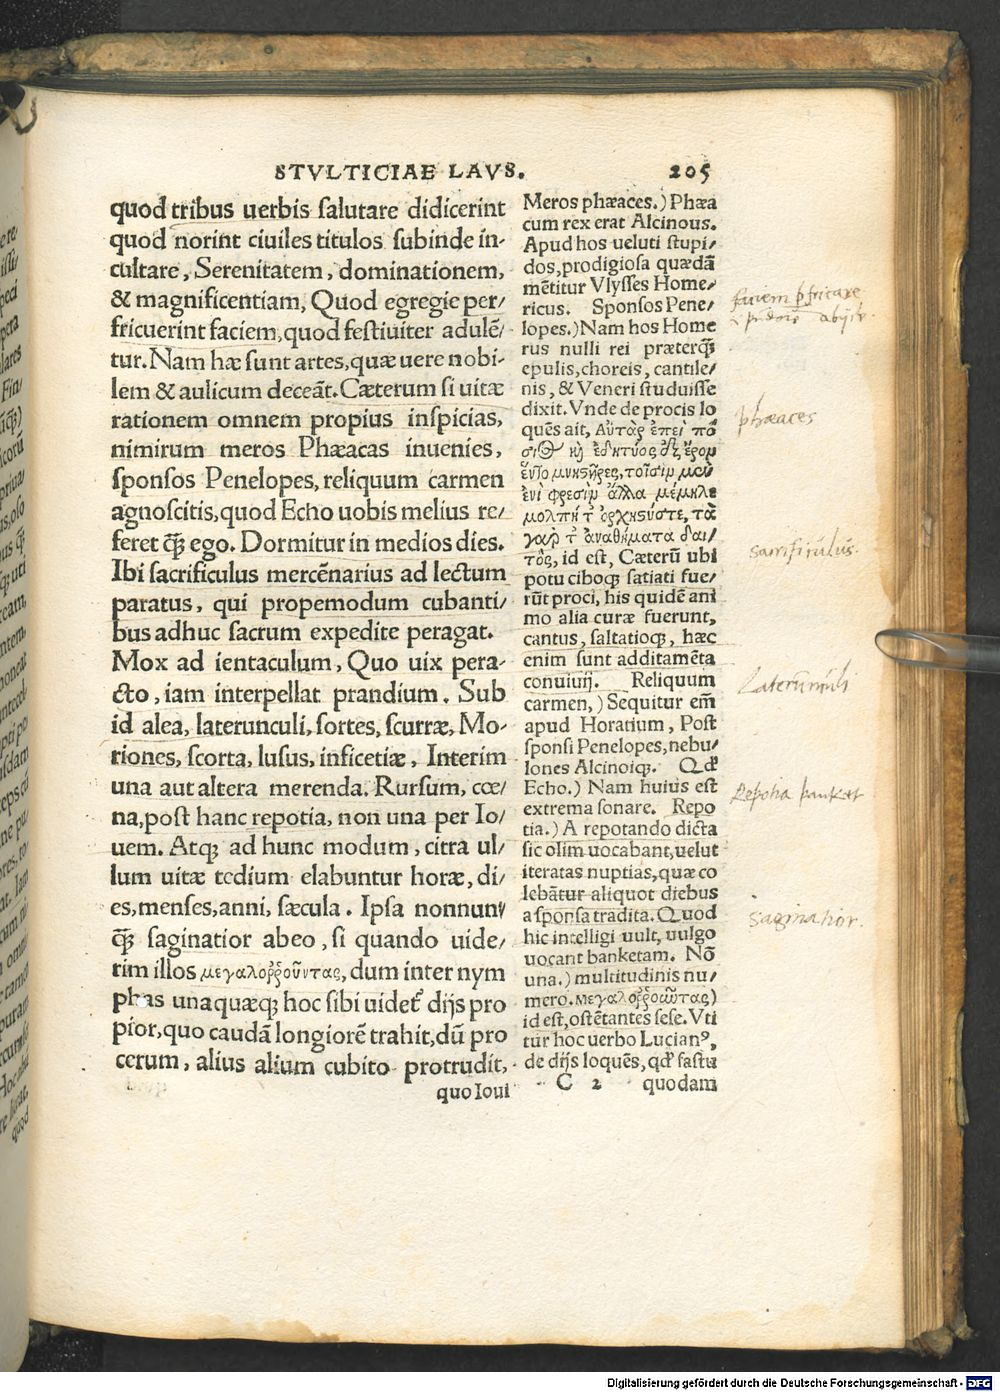 STVLTICIAE LAVS. 205
quod tribus uerbis salutare didicerint
quod norint ciuiles titulos subinde in-
cultare, Serenitatem, dominationem,
& magnificentiam, Quod egregie per/
fricuerint faciem, quod festiuiter adulē/
tur. Nam hæ sunt artes, quæ uere nobi-
lem & aulicum deceāt. Cæterum si uitæ
rationem omnem propius inspicias,
nimirum meros Phæacas inuenies,
sponsos Penelopes, reliquum carmen
agnoscitis, quod Echo uobis melius re/
feret q̄ȝ ego. Dormitur in medios dies.
Ibi sacrificulus mercēnarius ad lectum
paratus, qui propemodum cubanti/
bus adhuc sacrum expedite peragat.
Mox ad ientaculum, Quo uix pera-
cto, iam interpellat prandium. Sub
id alea, laterunculi, sortes, scurræ, Mo-
riones, scorta, lusus, inficetiæ, Interim
una aut altera merenda. Rursum, cœ/
na, post hanc repotia, non una per Io/
uem. Atqȝ ad hunc modum, citra ul/
lum uitæ tedium elabuntur horæ, di/
es, menses, anni, sæcula. Ipsa nonnun/
q̄ȝ saginatior abeo, si quando uide/
rim illos μεγαλοῤῥοῦντας, dum inter nym
phas unaquæqȝ hoc sibi uidet᷑ dijs pro
pior, quo caudā longiorē trahit, dū pro
cerum, alius alium cubito protrudit,
quo Ioui
Meros phæaces.) Phæa
cum rex erat Alcinous.
Apud hos ueluti stupi/
dos, prodigiosa quædā
mētitur Vlysses Home/
ricus. Sponsos Pene/
lopes.) Nam hos Home
rus nulli rei præterq̄ȝ
epulis, choreis, cantile/
nis, & Veneri studuisse
dixit. Vnde de procis lo
quēs ait, Αὐτὰρ ἐπεὶ πό
σιος καὶ ἐδητύος ἐξ ἔρον
ἕντο μνηστῆρες, τοῖσιν μὲν
ἐνὶ φρεσὶν ἄλλα μέμηλε
μολπή τ' ὀρχηστύς τε, τὰ
γὰρ τ' ἀναθήματα δαι/
τός, id est, Cæterū ubi
potu ciboqȝ satiati fue/
rūt proci, his quidē ani
mo alia curæ fuerunt,
cantus, saltatioqȝ, hæc
enim sunt additamēta
conuiuij. Reliquum
carmen,) Sequitur em̄
apud Horatium, Post
sponsi Penelopes, nebu/
lones Alcinoiqȝ. Qd'
Echo.) Nam huius est
extrema sonare. Repo
tia.) A repotando dicta
sic olim uocabant, uelut
iteratas nuptias, quæ co
lebātur aliquot diebus
a sponsa tradita. Quod
hic intelligi uult, uulgo
uocant banketam. Nō
una.) multitudinis nu/
mero. μεγαλοῤῥοῶτας)
id est, ostētantes sese. Vti
tur hoc uerbo Lucian⁹,
de dijs loquēs, qd' fastu
C 2 quodam
faciem p̱fricare
phæaces
sacrifi culus.
Laterūculi
Repotia banket
Saginatior.
Digitalisierung gefördert durch die Deutsche Forschungsgemeinschaft - DFG